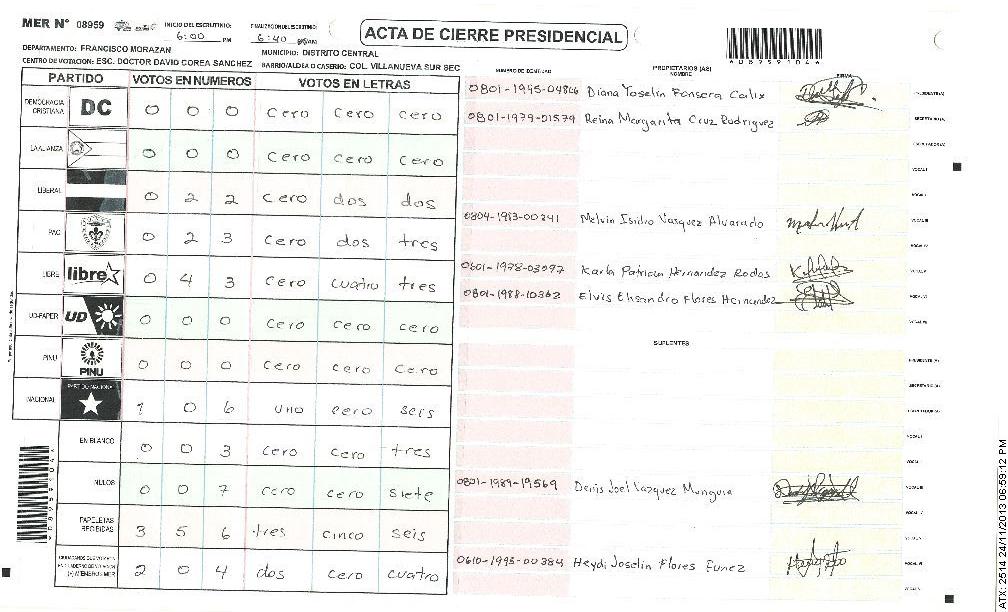 MER Nº 08959 INICIO DEL ESCRUTINIO: 6:00 PM FINALIZACION DEL ESCRUTINIO: 6:40 PM
ACTA DE CIERRE PRESIDENCIAL
*D8959104*
DEPARTAMENTO: FRANCISCO MORAZAN MUNICIPIO: DISTRITO CENTRAL
CENTRO DE VOTACION: ESC. DOCTOR DAVID COREA SANCHEZ BARRIO/ALDEA O CASERIO: COL. VILLANUEVA SUR SEC
PARTIDO VOTOS EN NUMEROS VOTOS EN LETRAS
DEMOCRACIA CRISTIANA DC 0 0 0 cero cero cero
LA ALIANZA 0 0 0 cero cero cero
LIBERAL 0 2 2 cero dos dos
PAC 0 2 3 cero dos tres
LIBRE libre 0 4 3 cero cuatro tres
UD-FAPER UD 0 0 0 cero cero cero
PINU PINU 0 0 0 cero cero cero
NACIONAL PARTIDO NACIONAL 1 0 6 uno cero seis
EN BLANCO 0 0 3 cero cero tres
NULOS 0 0 7 cero cero siete
PAPELETAS RECIBIDAS 3 5 6 tres cinco seis
CIUDADANOS QUE VOTARON 2 0 4 dos cero cuatro
NUMERO DE IDENTIDAD PROPIETARIOS (AS) NOMBRE FIRMA
Diana Yoselin Fonseca Calix PRESIDENTE(A)
0801-1979-01579 Reina Margarita Cruz Rodriguez SECRETARIO(A)
ESCRUTADOR(A)
VOCAL I
VOCAL II
0804-1983-00241 Melvin Isidro Vasquez Alvarado VOCAL III
VOCAL IV
0601-1978-03097 Karla Patricia Hernandez Rodas VOCAL V
0801-1988-10362 Elvis Elisandro Flores Hernandez VOCAL VI
VOCAL VII
SUPLENTES
PRESIDENTE(A)
SECRETARIO(A)
ESCRUTADOR(A)
VOCAL I
VOCAL II
0801-1989-19569 Denis Joel Vazquez Munguia VOCAL III
VOCAL IV
VOCAL V
0610-1995-00384 Heydi Joselin Flores Funez VOCAL VI
ATX: 2514 24/11/2013 06:59:12 PM